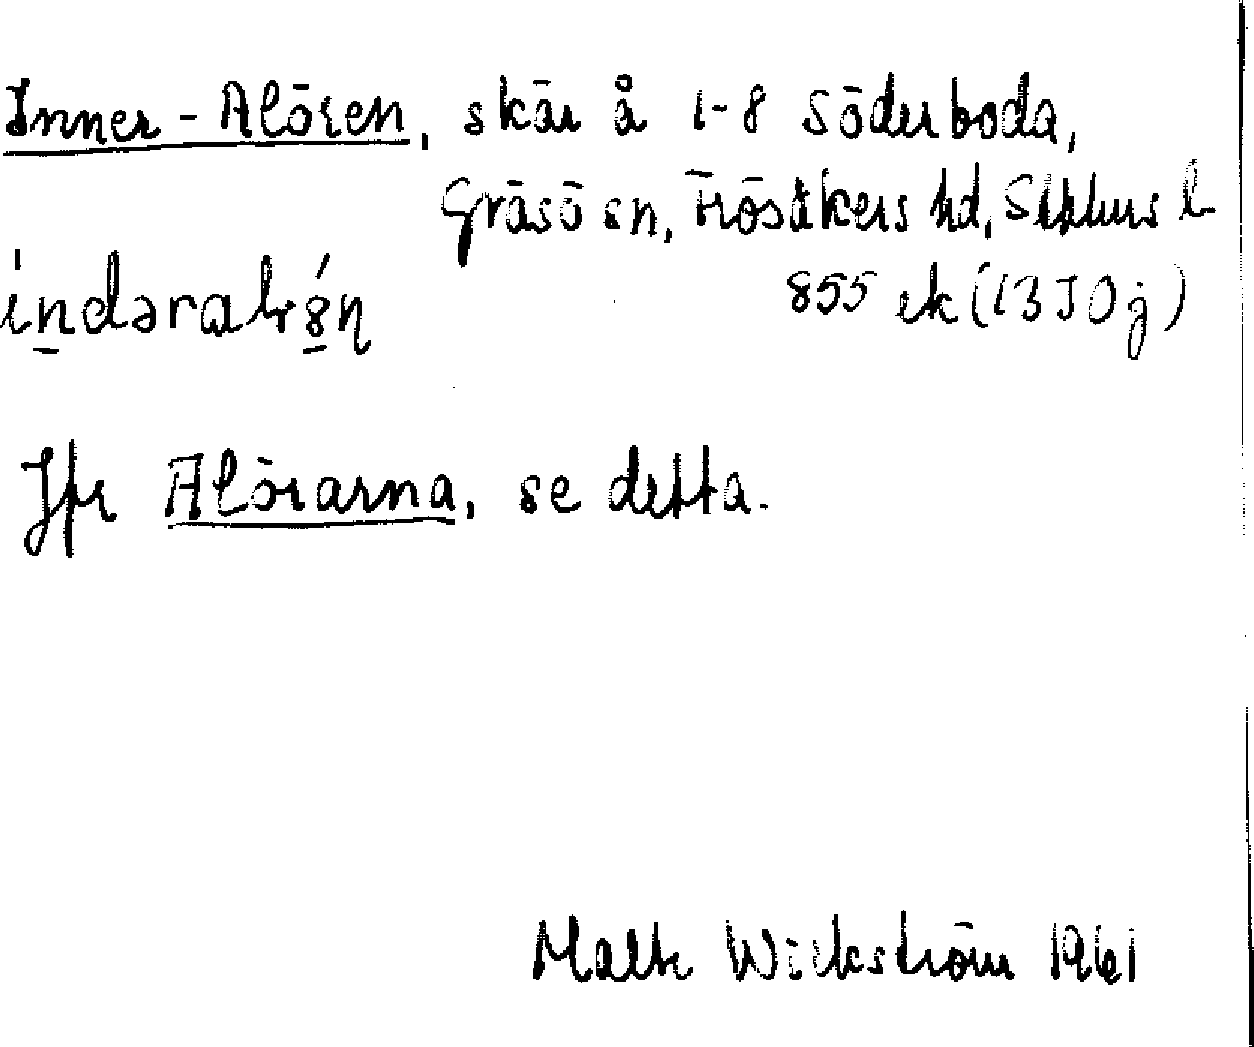 Inner-Alören, skär å 1-8 Söderboda,
Gräsö sn, Frösåkers hd, Sthlms l
855 ek (13J0j)
Jfr Alörarna, se detta.
Malte Wickström 1961